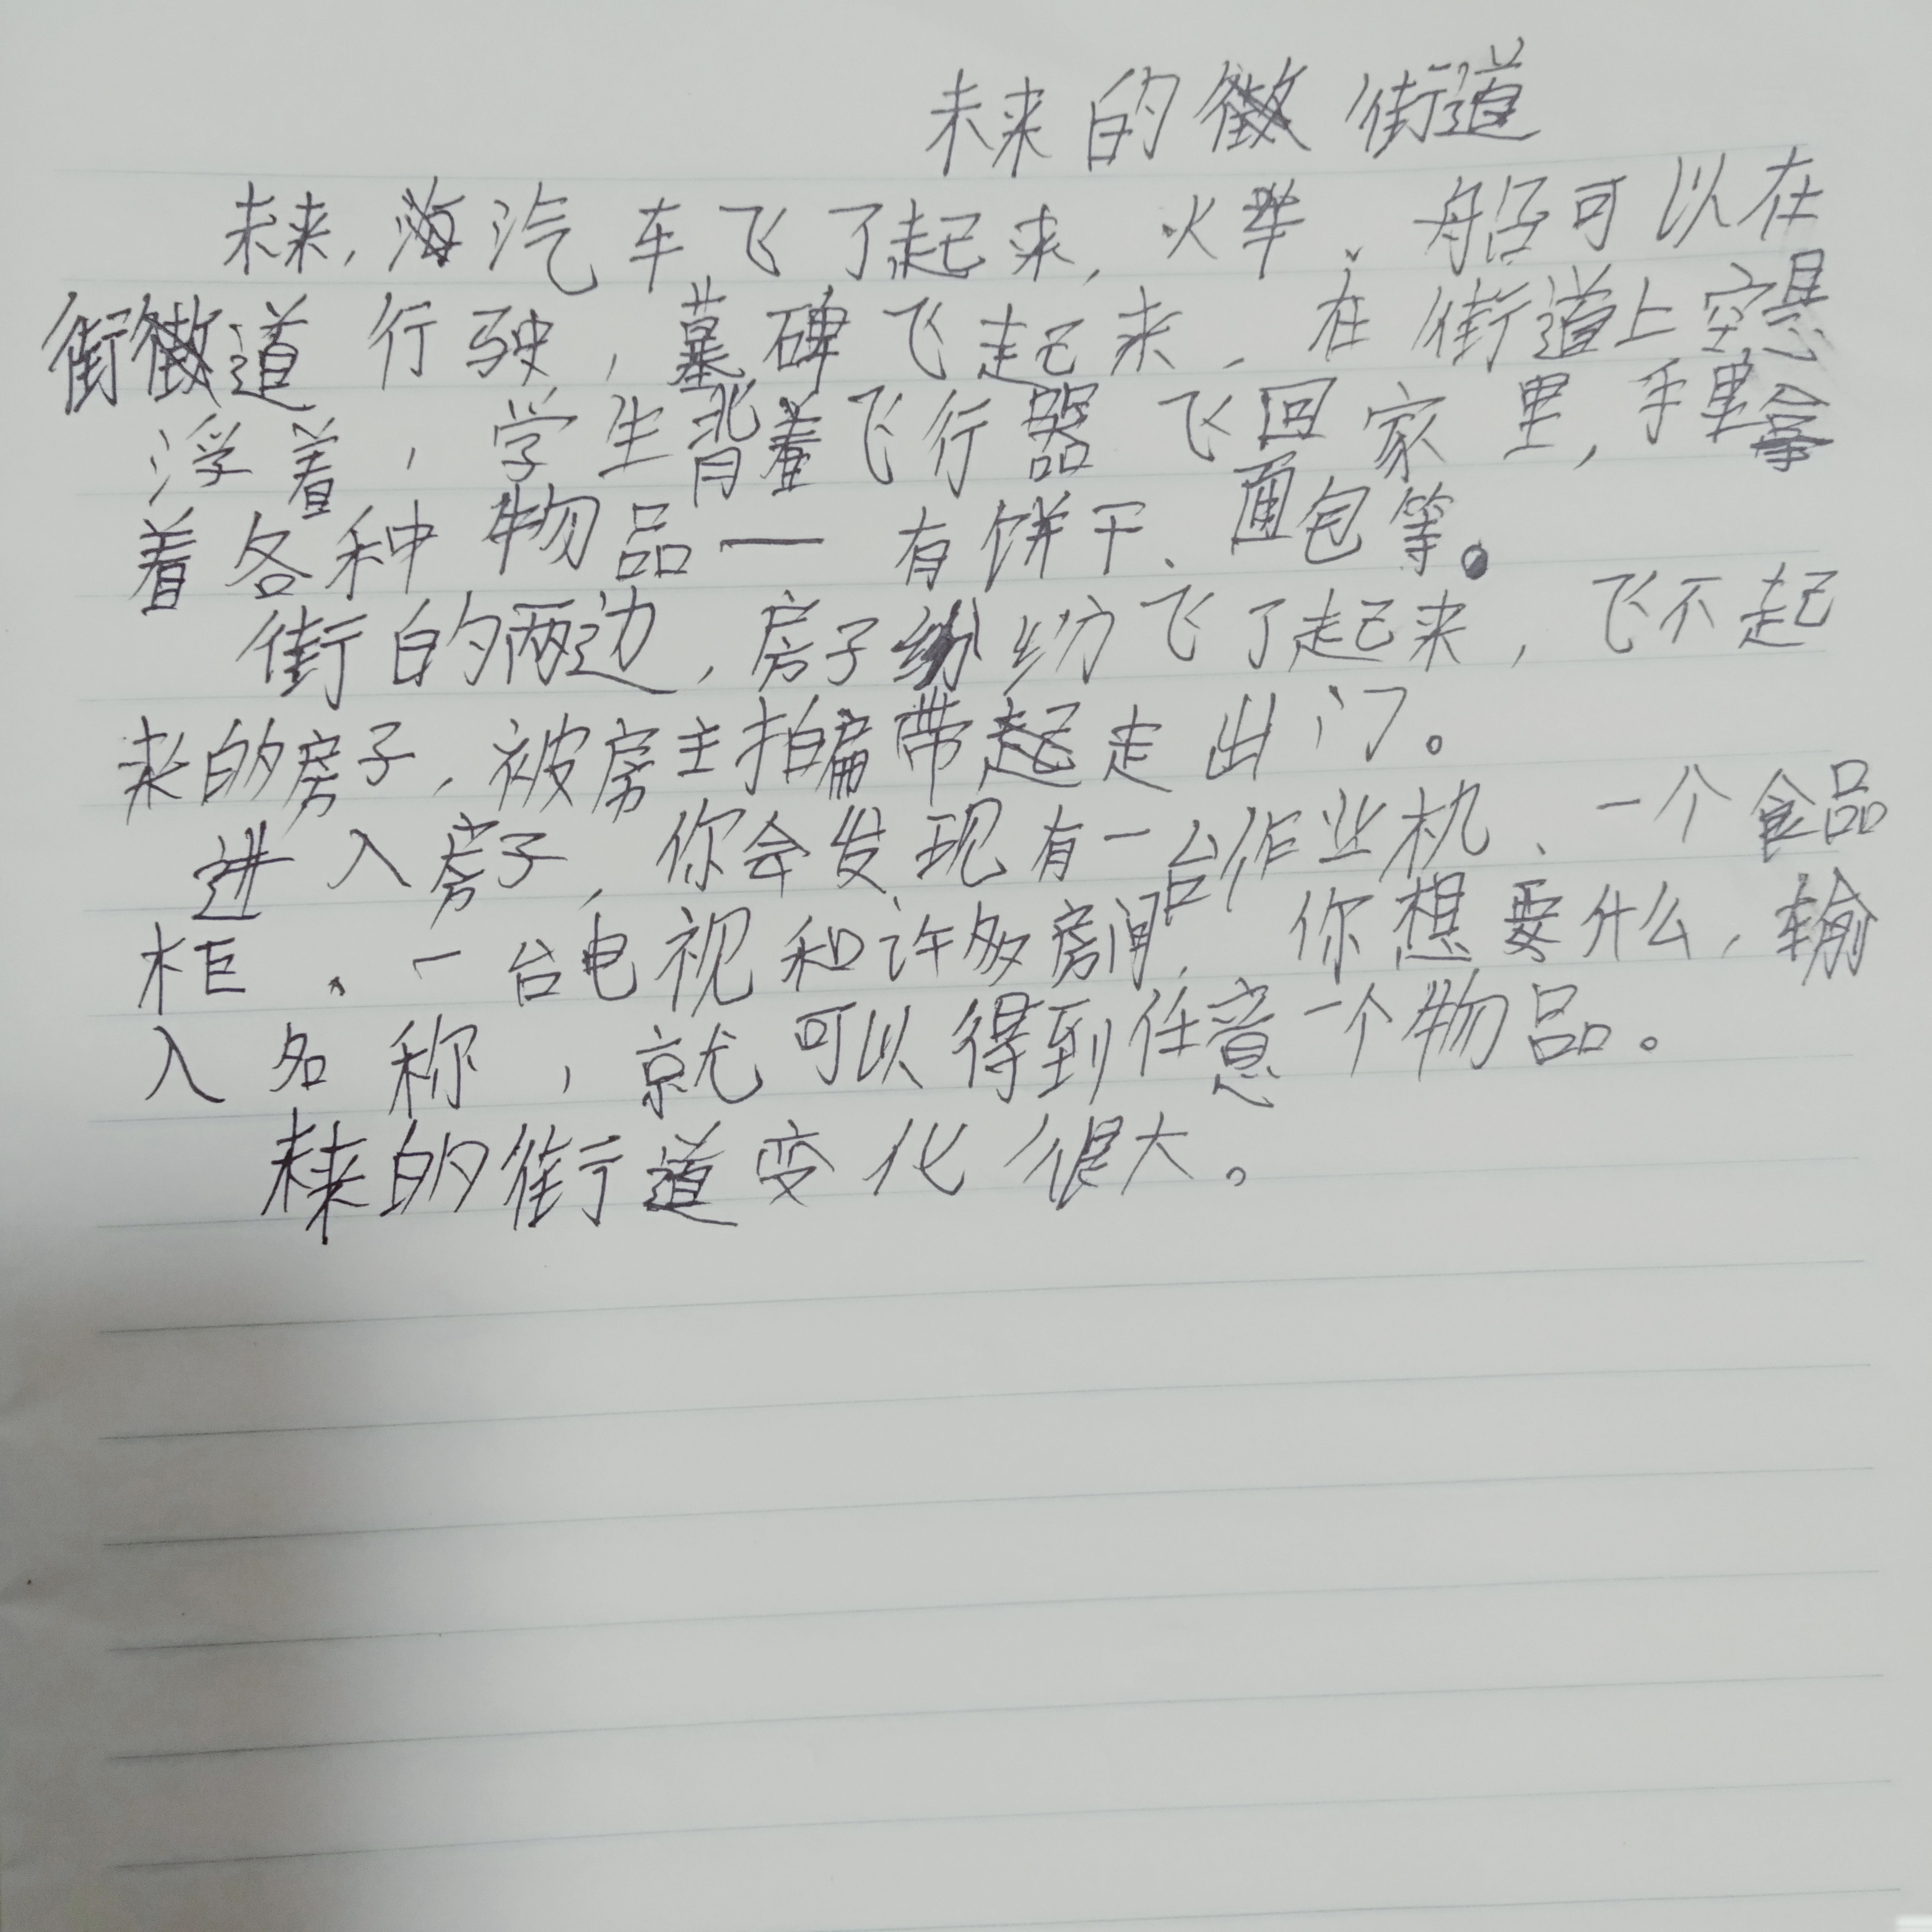 未来的街道
未来,汽车飞了起来,火车、船可以在
街道行驶,墓碑飞起来,在街道上空悬
浮着,学生背着飞行器飞回家里,手里拿
着各种物品一有饼干、面包等。
街的两边,房子纷纷飞了起来,飞不起
来的房子,被房主拍扁带走出门。
进入房子,你会发现有一台作业机、一个食品
柜、一台电视和许多房间,你想要什么,输
入名称,就可以得到任意一个物品。
未来的街道变化很大。